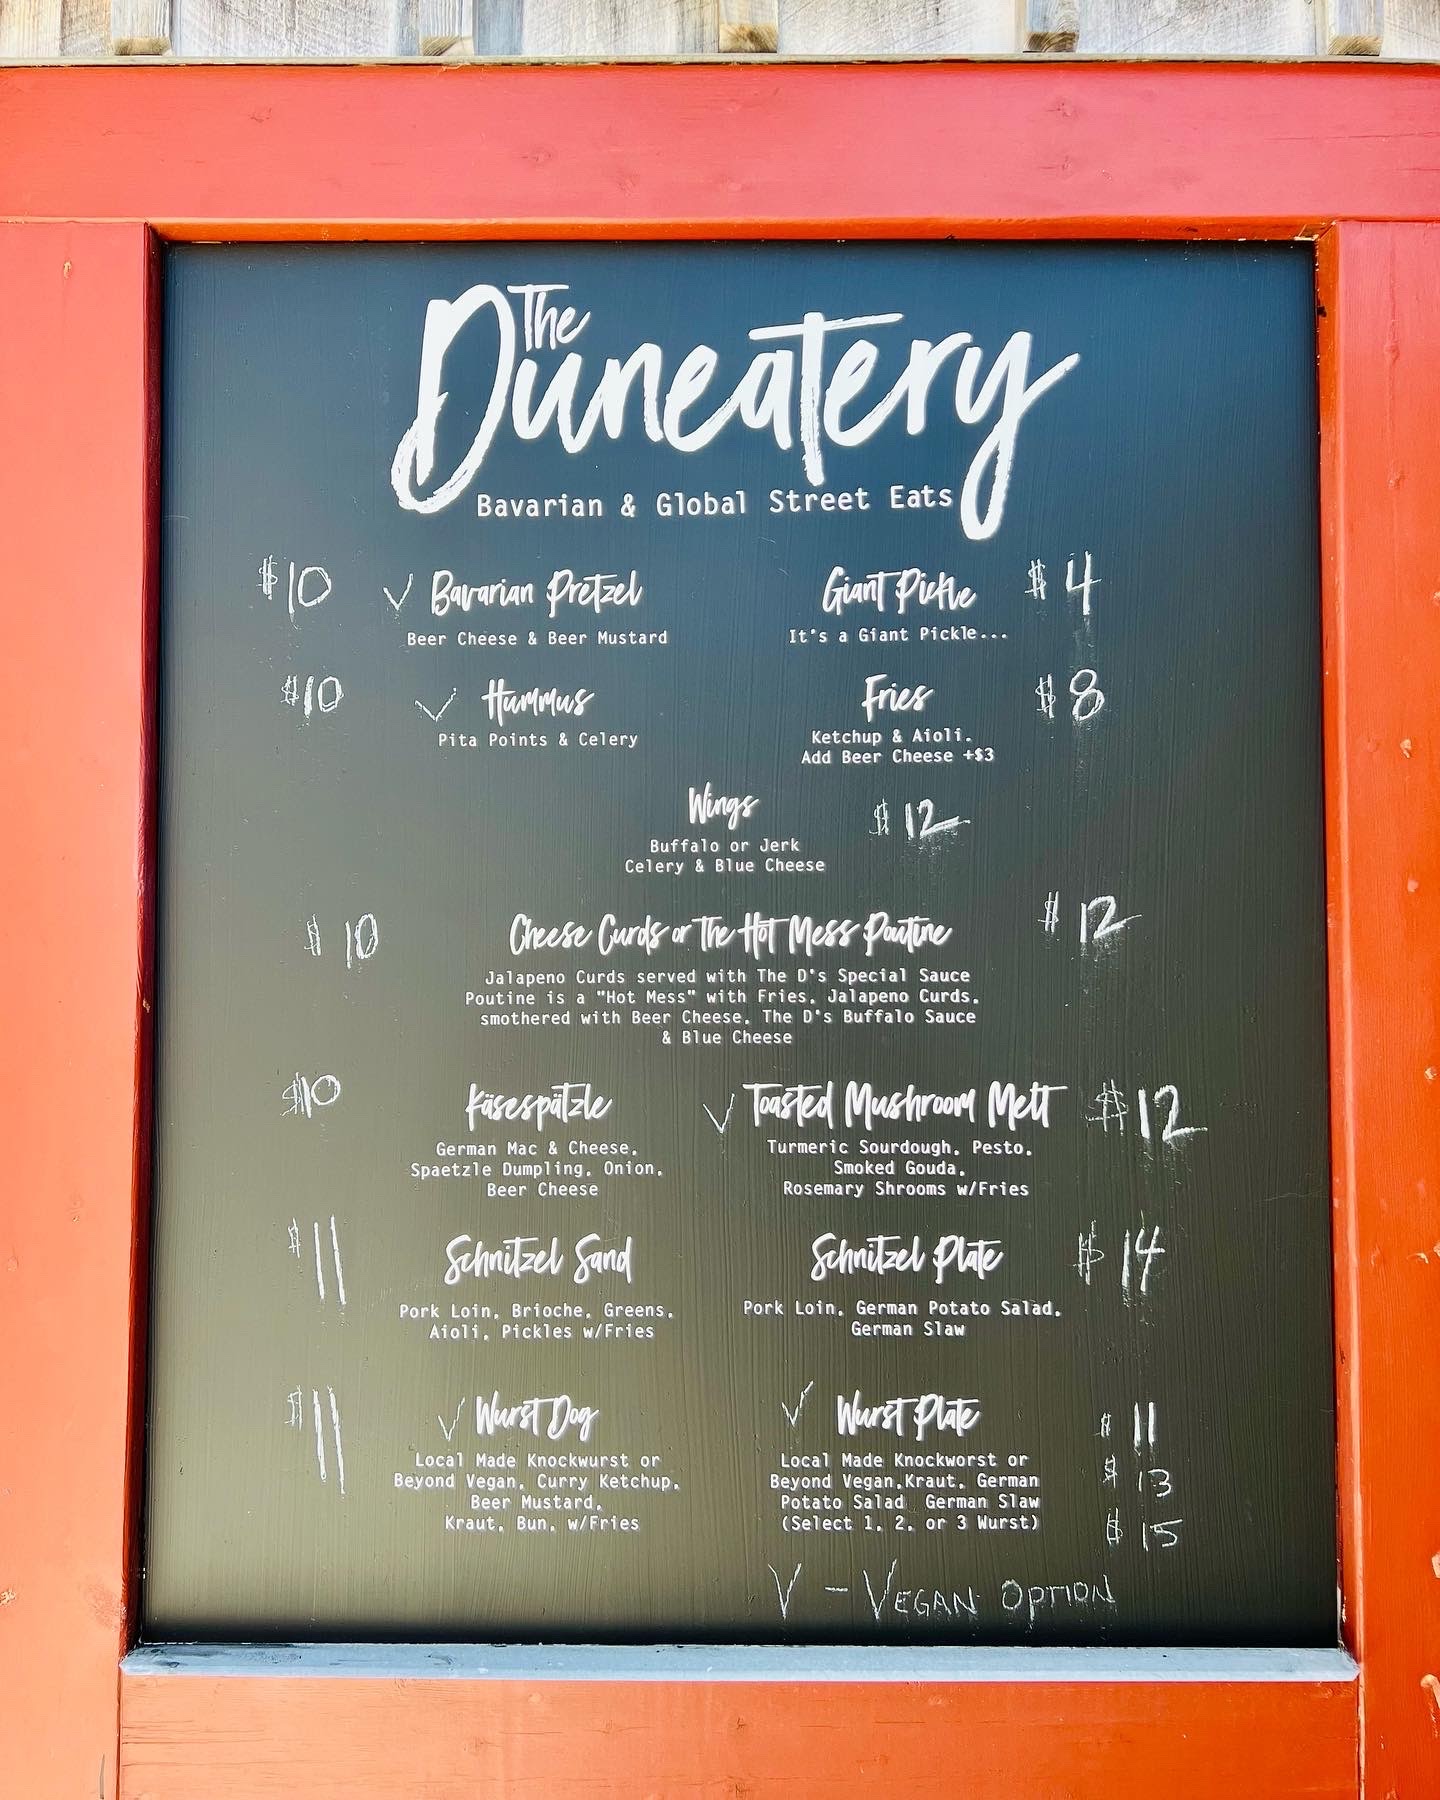 The
Duneatery
Bavarian & Global Street Eats
$10 V Bavarian Pretzel
Beer Cheese & Beer Mustard
Giant Pickle $4
It's a Giant Pickle...
$10 V Hummus
Pita Points & Celery
Fries $8
Ketchup & Aioli.
Add Beer Cheese +$3
Wings $12
Buffalo or Jerk
Celery & Blue Cheese
$10 Cheese Curds or The Hot Mess Poutine $12
Jalapeno Curds served with The D's Special Sauce
Poutine is a "Hot Mess" with Fries, Jalapeno Curds,
smothered with Beer Cheese, The D's Buffalo Sauce
& Blue Cheese
$10 Käsespätzle
German Mac & Cheese,
Spaetzle Dumpling, Onion,
Beer Cheese
V Toasted Mushroom Melt $12
Turmeric Sourdough, Pesto,
Smoked Gouda,
Rosemary Shrooms w/Fries
$11 Schnitzel Sand
Pork Loin, Brioche, Greens,
Aioli, Pickles w/Fries
Schnitzel Plate $14
Pork Loin, German Potato Salad,
German Slaw
$11 V Wurst Dog
Local Made Knockwurst or
Beyond Vegan, Curry Ketchup,
Beer Mustard,
Kraut, Bun, w/Fries
V Wurst Plate $11
Local Made Knockworst or
Beyond Vegan,Kraut, German $13
Potato Salad German Slaw
(Select 1, 2, or 3 Wurst) $15
V - VEGAN OPTION